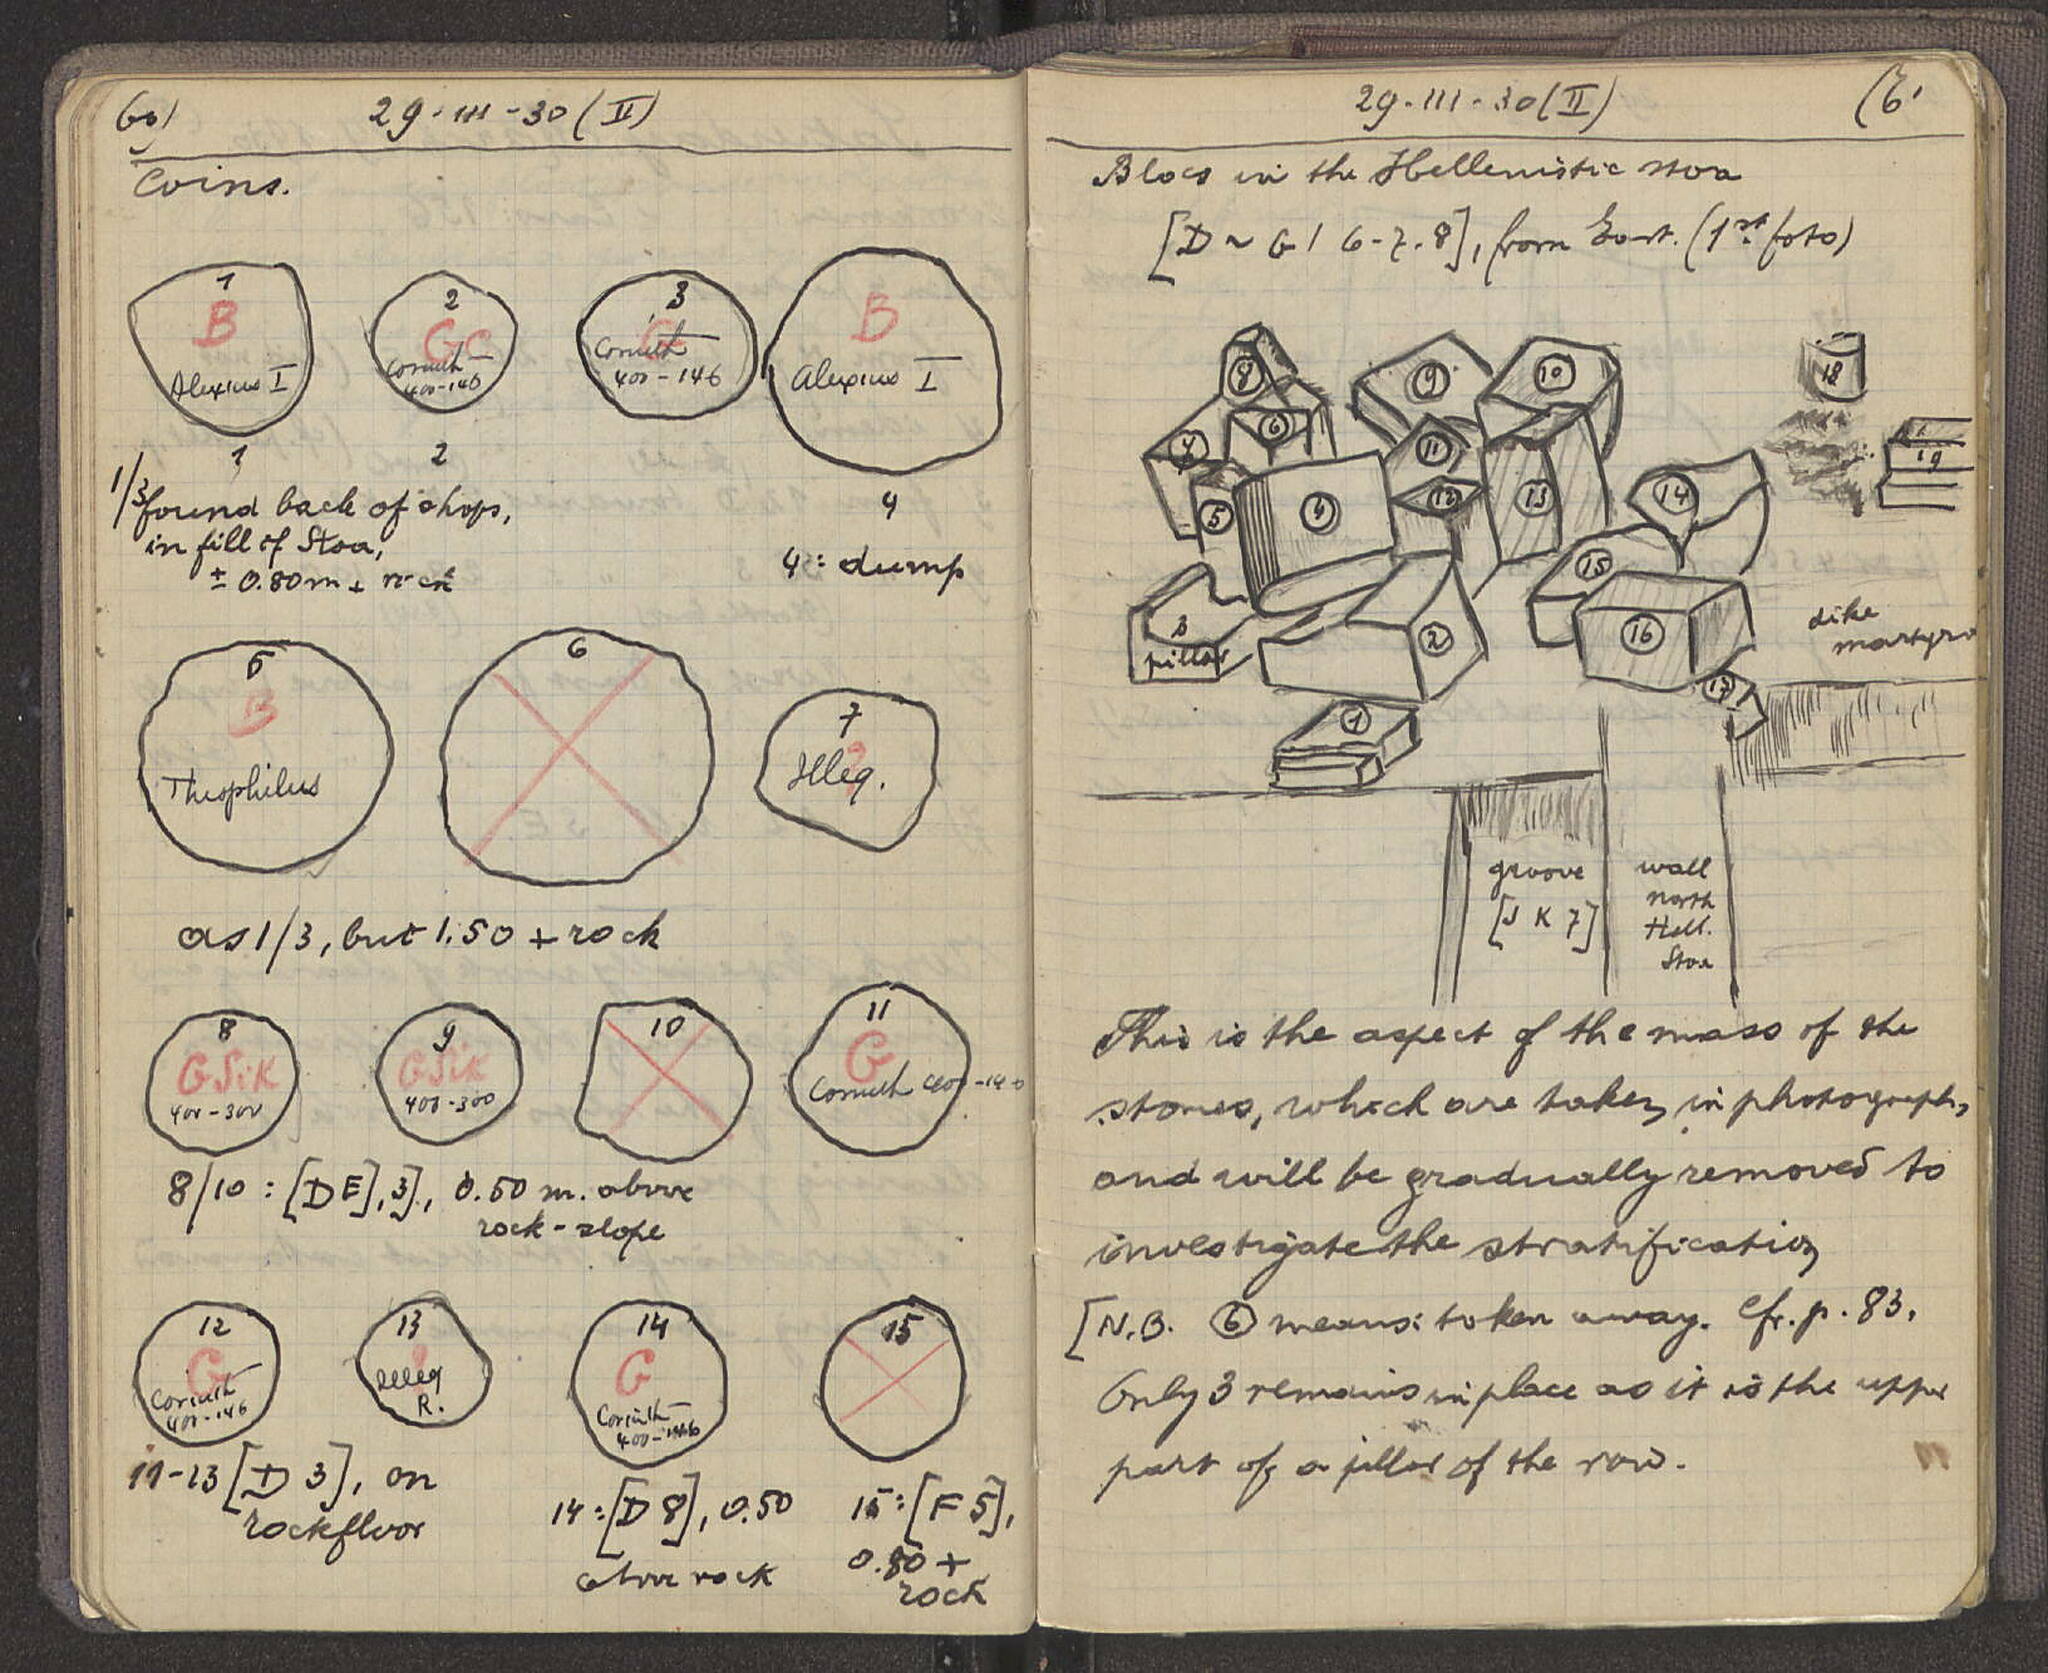 60)
29·III-30 (II)
Coins.
1
B
Alexius I
2
GC
Corinth
400-146
3
G
Corinth
400-146
B
Alexius I
1
2
4
1/3 found back of shops,
in fill of Stoa,
± 0.80 m + rock
4: dump
5
B
Theophilus
6
7
?
Illeg.
as 1/3, but 1.50 + rock
8
G Sik
400-300
9
G Sik
400-300
10
11
G
Corinth 400-146
8/10 : [DE], 3], 0.50 m. above
rock-slope
12
G
Corinth
400-146
13
Illeg
R.
14
G
Corinth
400-146
15
11-13 [D 3], on
rockfloor
14: [D 8], 0.50
above rock
15: [F 5],
0.80 +
rock
29·III·30 (II)
(6
Blocs in the Hellenistic stoa
[D ~ G / 6-7.8], from East. (1st foto)
8
9
10
18
7
6
11
19
5
4
12
13
14
15
3
pillar
2
16
dike
17
1
groove
[J K 7]
wall
north
Hell.
Stoa
This is the aspect of the mass of the
stones, which are taken in photograph,
and will be gradually removed to
investigate the stratification
[N.B. 6 means: taken away. Cfr. p. 83.
Only 3 remains in place as it is the upper
part of a pillar of the row.